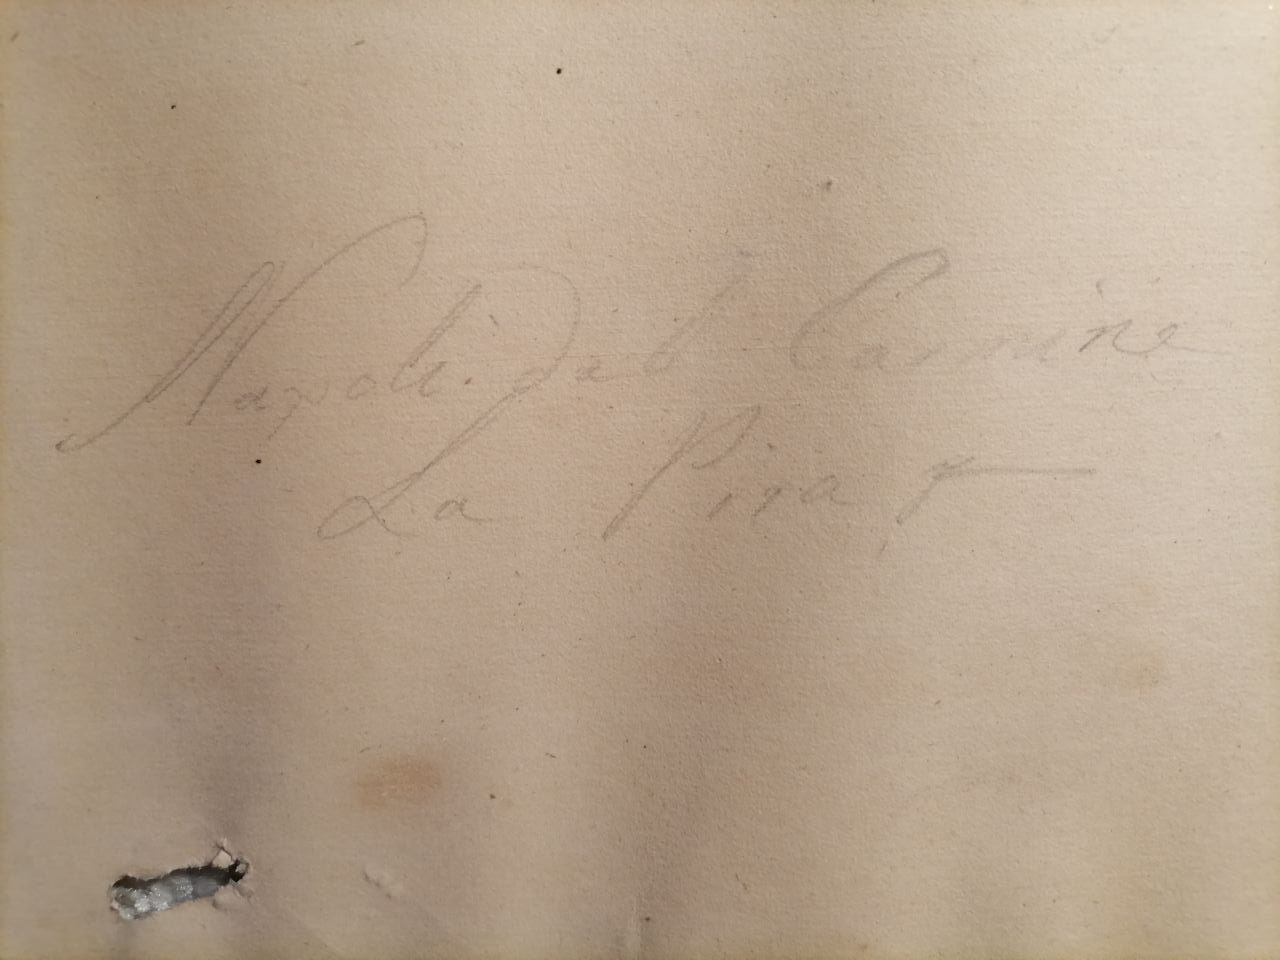 Napoli dal Carmine
La Pira